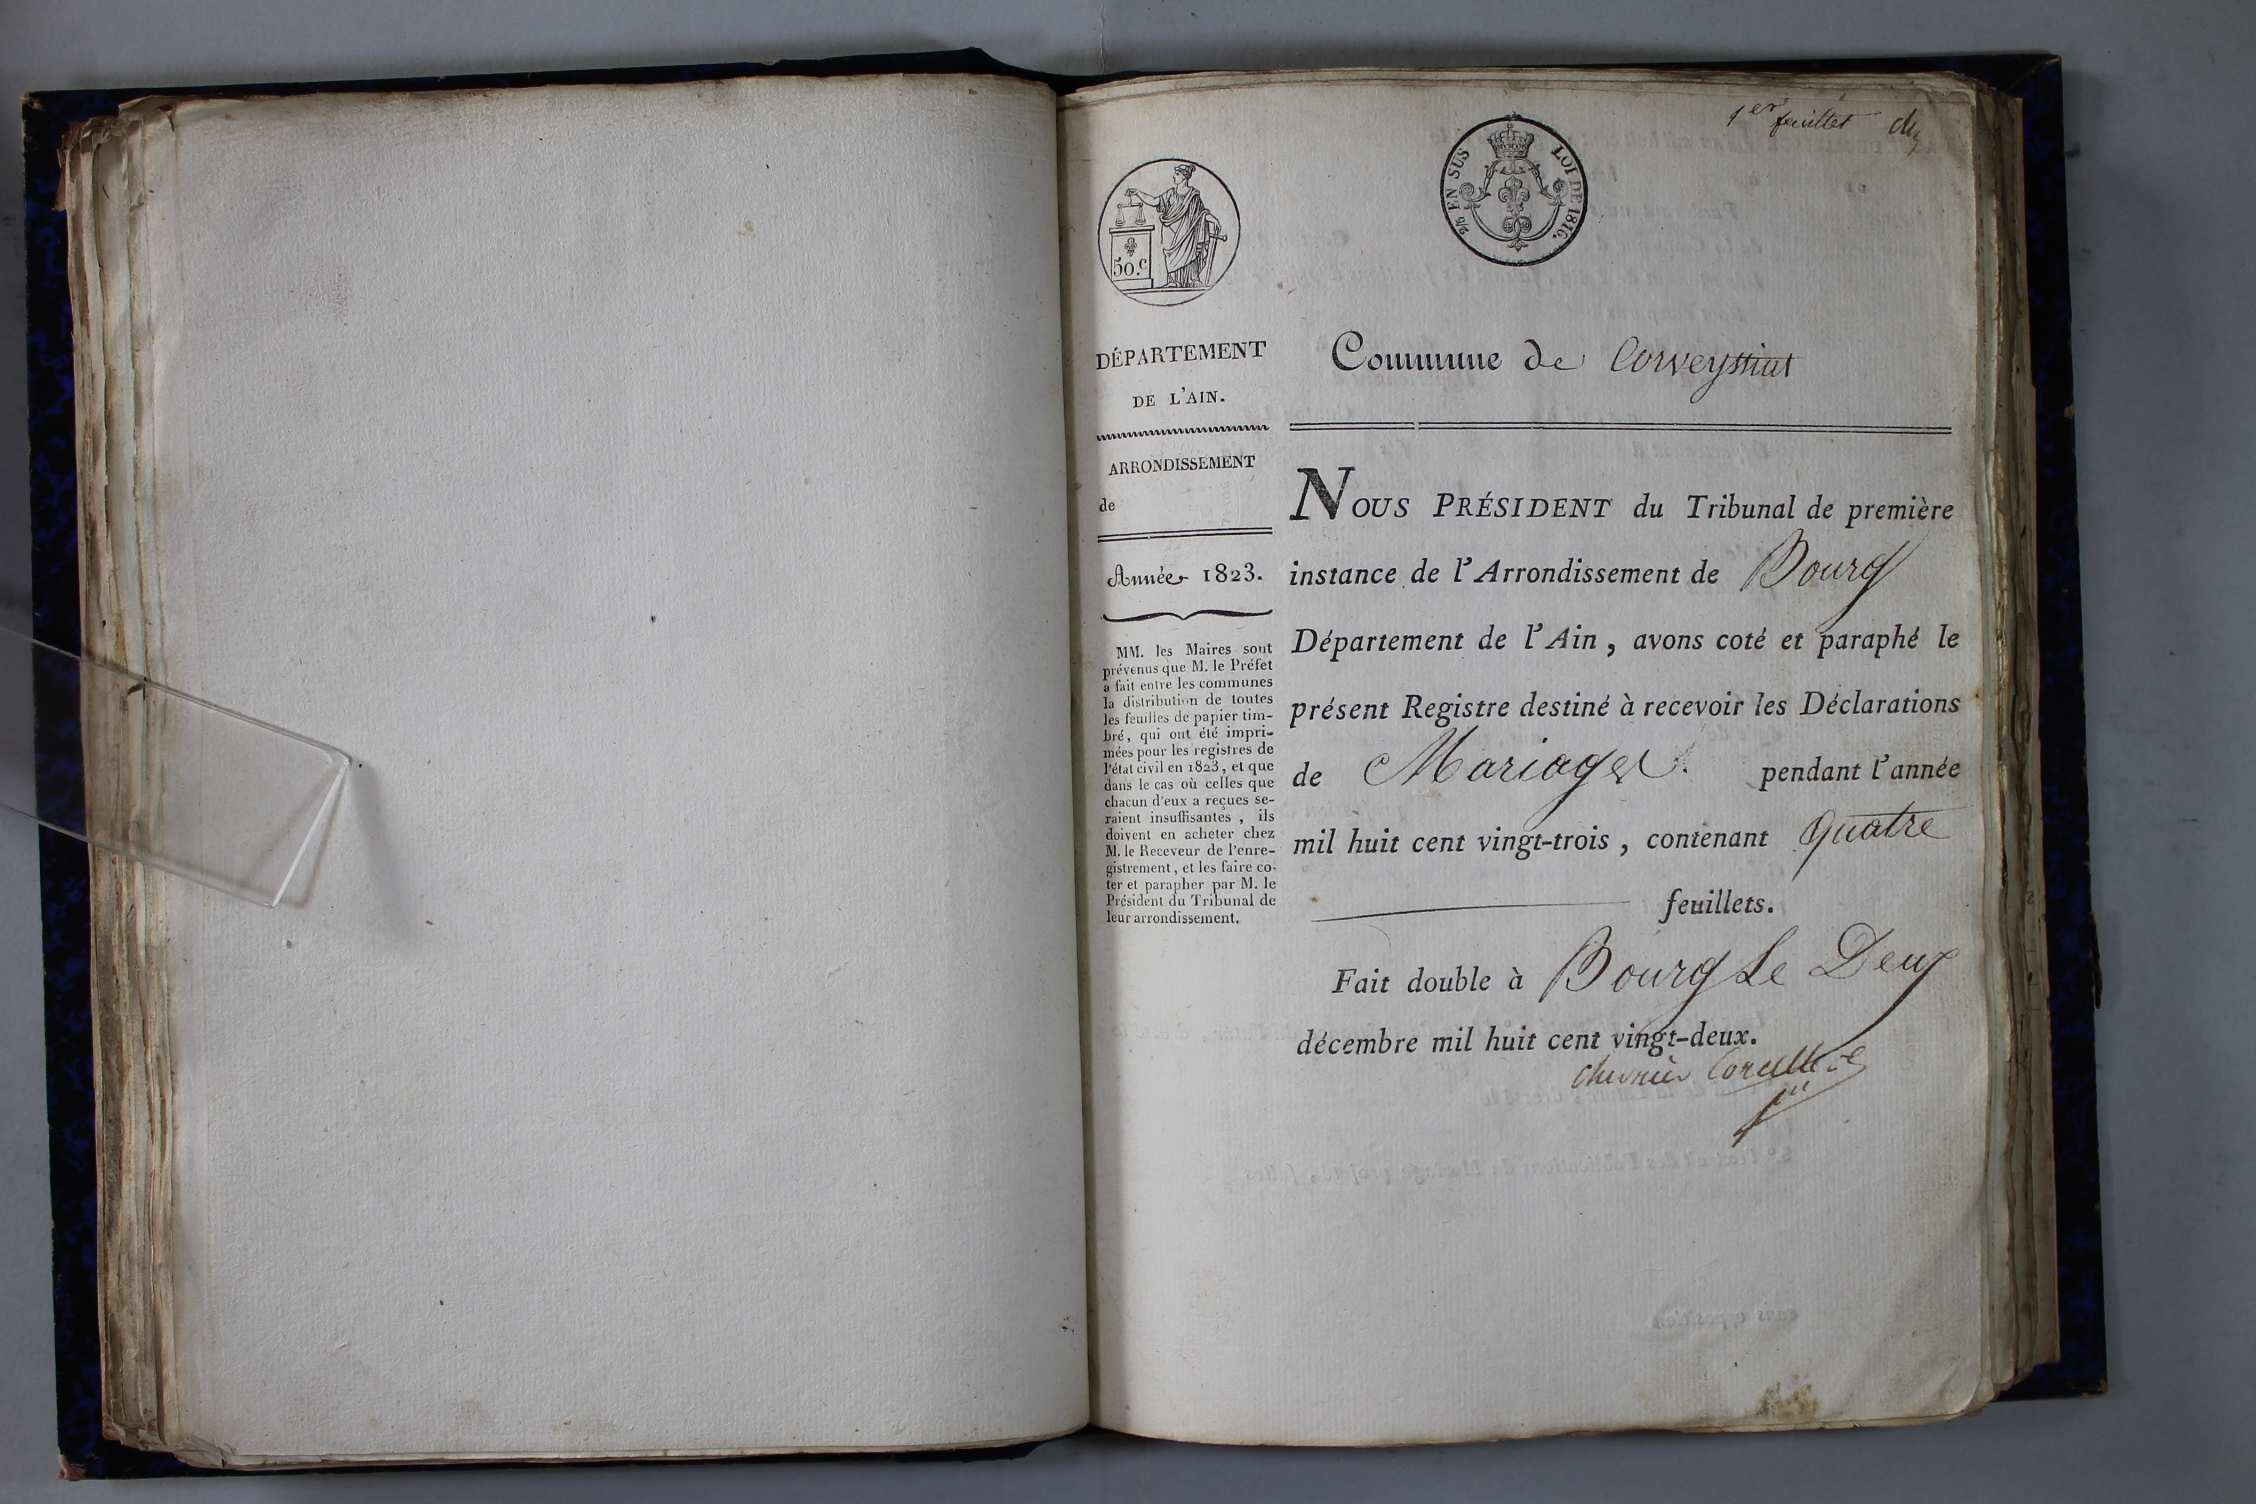 1er feuillet
50.c
2/5 EN SUS LOI DE 1816.
DÉPARTEMENT
DE L'AIN.
ARRONDISSEMENT
de
Année 1823.
MM. les Maires sont
prévenus que M. le Préfet
a fait entre les communes
la distribution de toutes
les feuilles de papier tim-
bré, qui ont été impri-
mées pour les registres de
l'état civil en 1823, et que
dans le cas où celles que
chacun d'eux a reçues se-
raient insuffisantes, ils
doivent en acheter chez
M. le Receveur de l'enre-
gistrement, et les faire co-
ter et parapher par M. le
Président du Tribunal de
leur arrondissement.
Commune de Corveyssiat
NOUS PRÉSIDENT du Tribunal de première
instance de l'Arrondissement de Bourg
Département de l'Ain, avons coté et paraphé le
présent Registre destiné à recevoir les Déclarations
de Mariages. pendant l'année
mil huit cent vingt-trois, contenant quatre
feuillets.
Fait double à Bourg Le Deux
décembre mil huit cent vingt-deux.